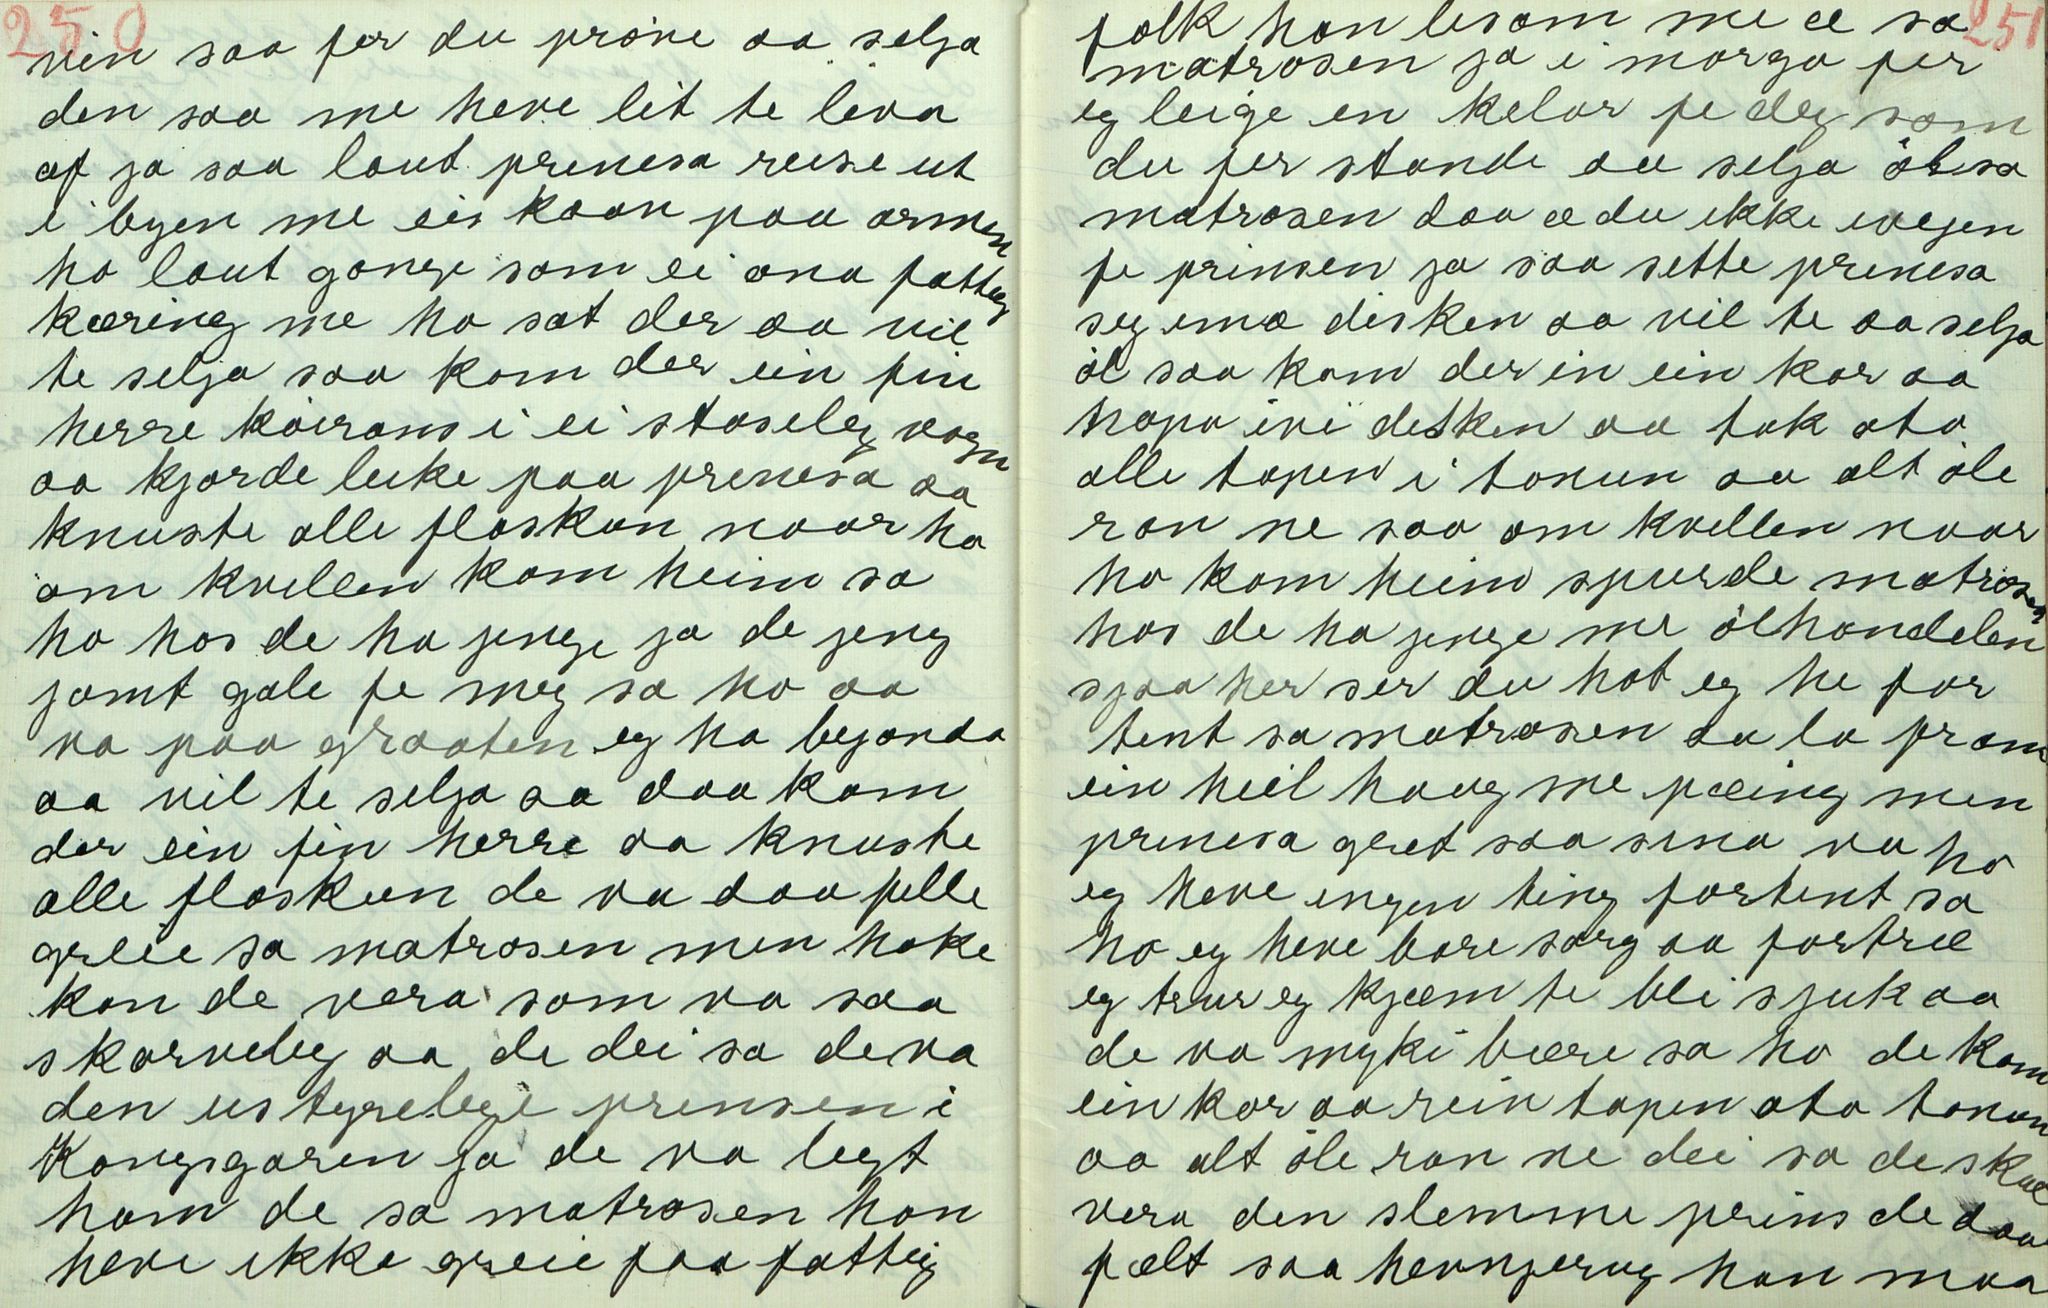 250
vin saa fer du prøve aa selja
den saa me heve lit te leva
af ja saa laut prinesa reise ut
i byen me eis kaan paa armen
ho laut gange som ei ana fattig
kæring me ho sat der aa vil
te selja saa kom der ein fin
herre køirans i ei staseleg vogn
aa kjørde leike paa prinesa aa
knuste alle flaskun naar ho
om kvellen kom heim sa
ho hos de ha jenge ja de jeng
jamt gale fe meg sa ho aa
va paa graaten eg ha bejonda
aa vil te selja so daa kom
der ein fin herre aa knuste
alle flaskun de va daa felle
greie sa matrosen men hoke
kan de vera som va saa
skarveleg aa de dei sa de va
den ustyrelege prinsen i
Kongsgaren ja de va legt
ham de sa matrosen han
heve ikke greie paa fattig
251
folk han lisom me æ sa
matrosen ja i morgo fer
eg leige en kelar fe deg som
du fer stande aa selja øl sa
matrosen daa æ du ikke ivegen
fe prinsen ja saa sette prinesa
seg imæ disken aa vil te aa selja
øl saa kom der in ein kar aa
hopa ivi disken aa tok ato
alle tapen i tonun aa alt øle
ran ne saa om kvellen naar
ho kom heim spurde matrosen
hos de ha jenge me ølhandelen
sjaa her ser du hot eg he for
tent sa matrosen aa la fram
ein heil haug me pæing men
prinesa gret saa sina va ho
eg heve ingen ting fortent sa
ho eg heve bare sorg aa fortræ
eg trur eg kjæm te bli sjuk aa
de va myki bære sa ho de kom
ein kar aa rein tapen ato tonun
aa alt øle ran ne dei sa de skul
vera den slemme prins de daa
fælt saa hevnjerug han maa